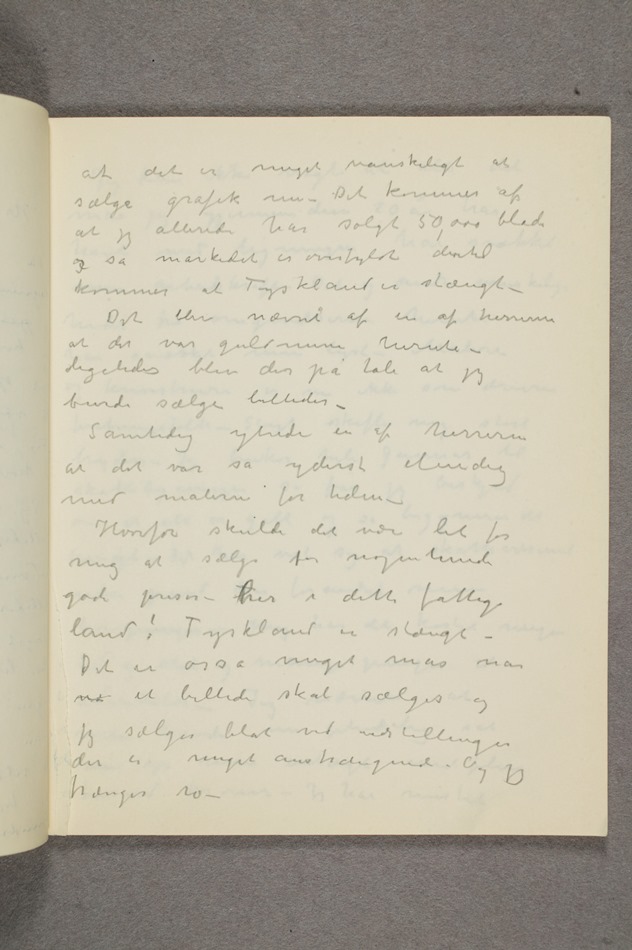 at det er meget vanskeligt at
sælge grafik nu – Det kommer af
at jeg allerede har solgt 50,000 blade
og så markedet er overfyldt dertil
kommer at Tyskland er stængt –
Det blev nævnt af en af herrerne
at det var guldminer
ligeledes blev der på tale at jeg
burde sælge billeder –
Samtidig ytrede en af herrerne
at det var så yderst elendig
med malerne for tiden –
Hvorfor skulde det være let for
mig at sælge for nogenlunde
gode priser – her i dette fattige
land! Tyskland er stængt –
Det er osså meget mas når
et billede skal sælges og
jeg sælger blot ved udstillinger
der er meget anstrængende – Og jeg
trænger ro –